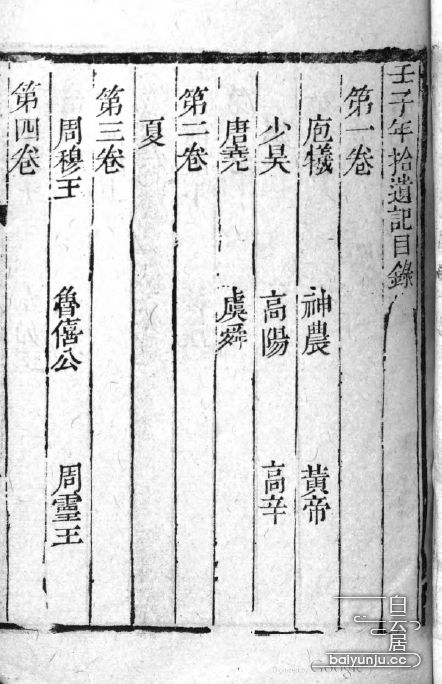 壬子年拾遺記目錄
第一卷
庖犧 神農 黃帝
少昊 高陽 高辛
唐堯 虞舜
第二卷
夏
第三卷
周穆王 魯僖公 周靈王
第四卷
白云居
baiyunju.cc